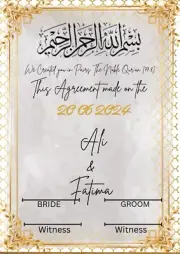 بسم الله الرحمن الرحيم
We Created you in Pairs, The Noble Qur'an [78:8]
This Agreement made on the
20 06 2024
Ali
&
Fatima
BRIDE GROOM
Witness Witness